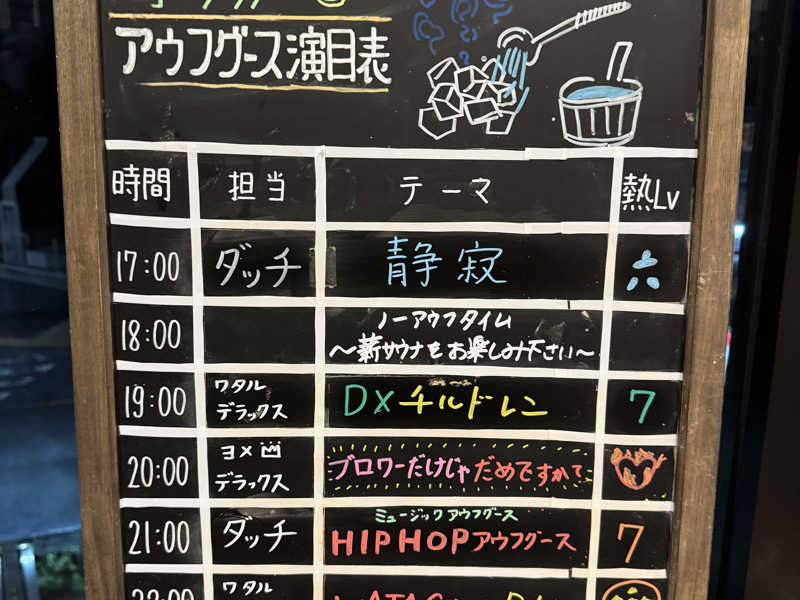 アウフグース演目表
時間 担当 テーマ 熱Lv
17:00 ダッチ 静寂 六
18:00 ノーアウフタイム
〜薪サウナをお楽しみ下さい〜
19:00 ワタル デラックス DXチルドレン 7
20:00 ヨメ デラックス ブロワーだけじゃだめですかて
21:00 ダッチ ミュージックアウフグース
HIPHOPアウフグース 7
ワタル